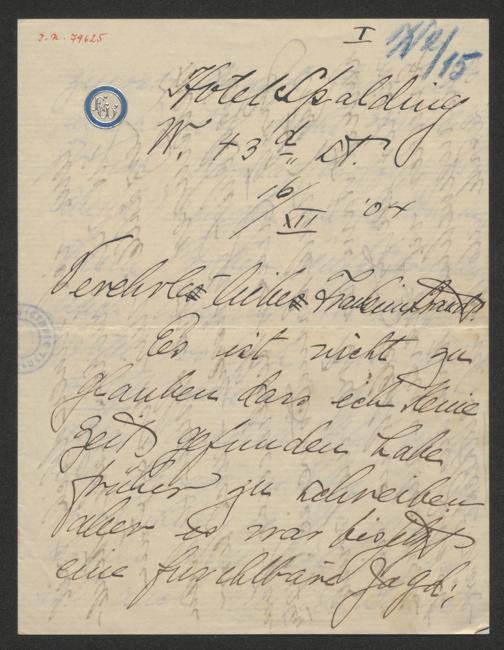 I.N. 79625
I
Hotel Spalding
W. 43d St.
16/XII '04
Verehrte liebe Fräulein
Es ist nicht zu
glauben dass ich keine
Zeit gefunden habe
früher zu schreiben
aber es war bis jetzt
eine furchtbare Jagd;